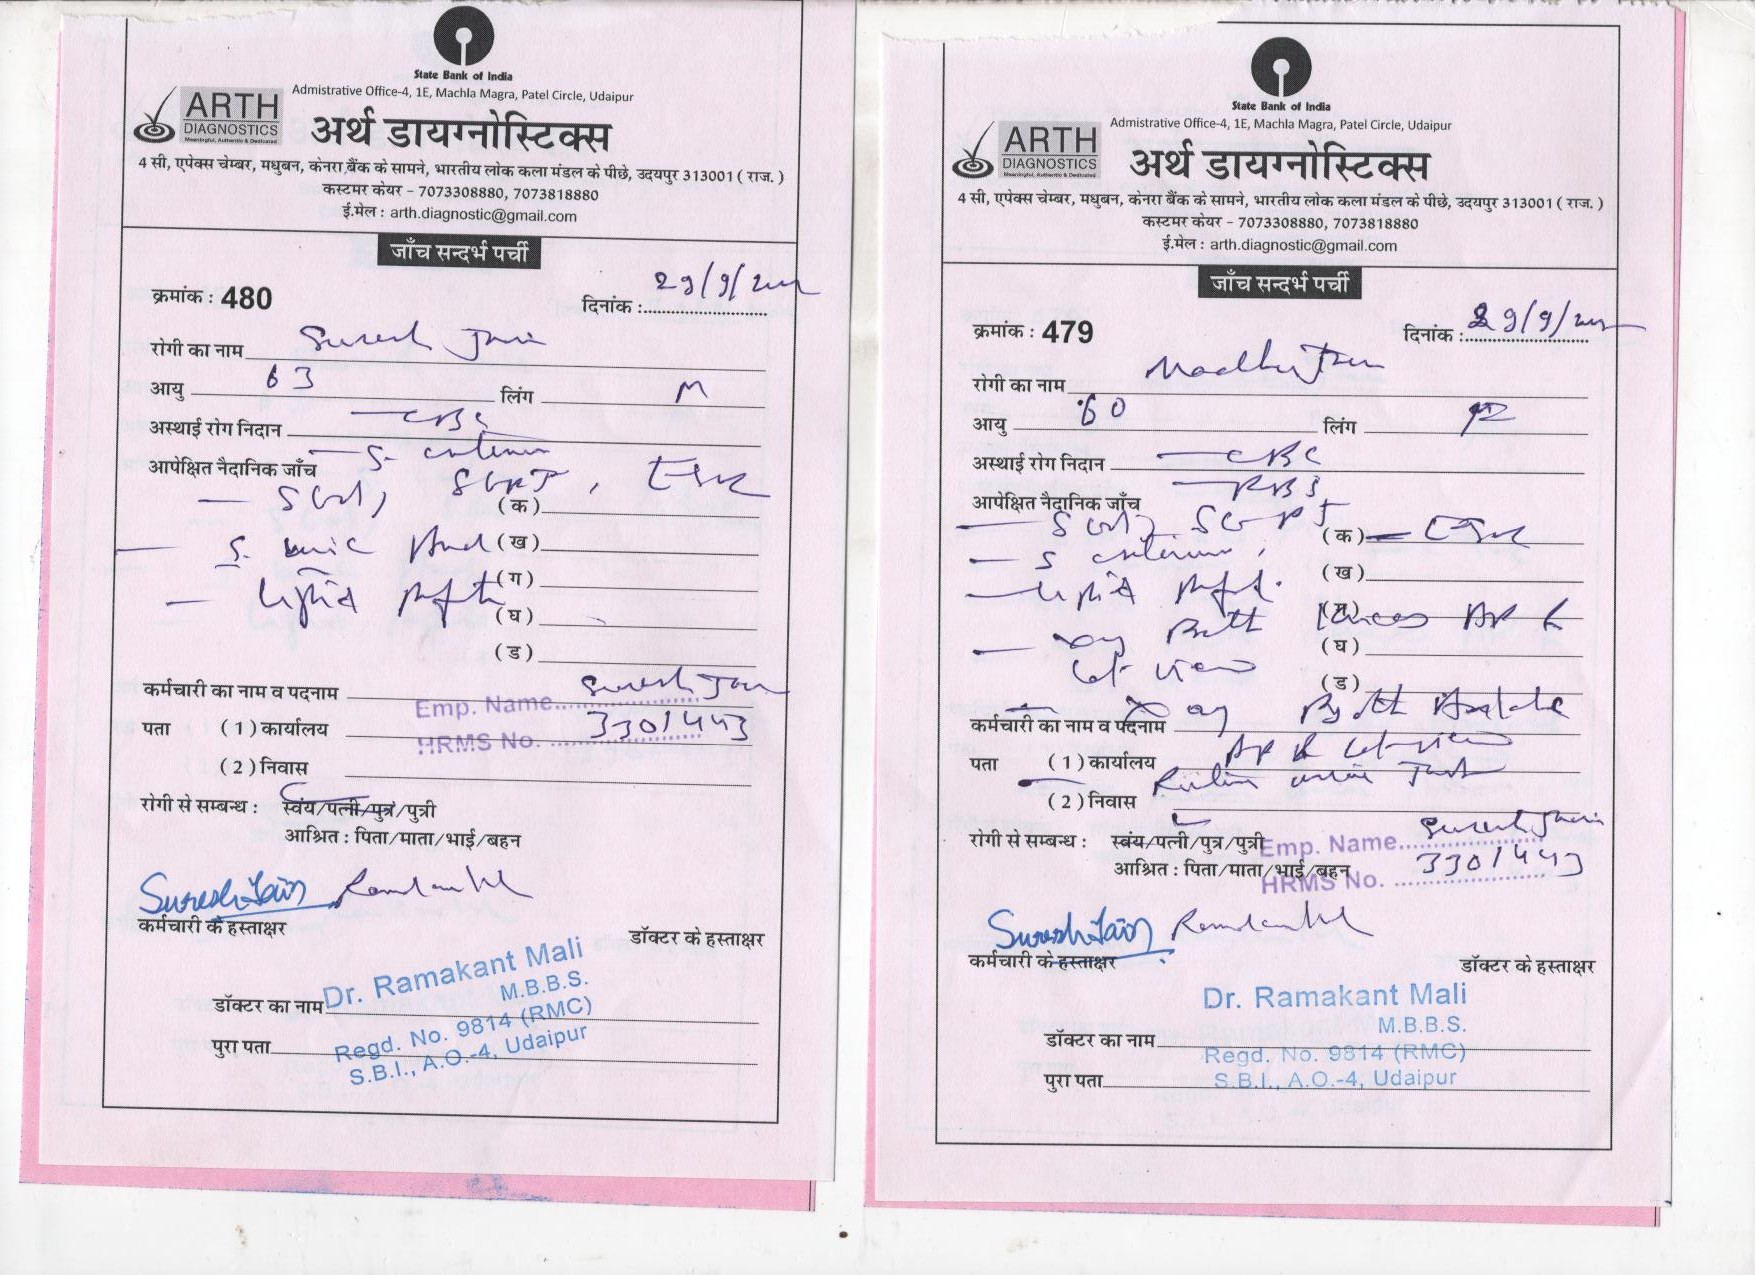 State Bank of India
Admistrative Office-4, 1E, Machla Magra, Patel Circle, Udaipur
ARTH
DIAGNOSTICS
Meaningful, Authentic & Dedicated
अर्थ डायग्नोस्टिक्स
4 सी, एपेक्स चेम्बर, मधुबन, केनरा बैंक के सामने, भारतीय लोक कला मंडल के पीछे, उदयपुर 313001 ( राज. )
कस्टमर केयर – 7073308880, 7073818880
ई.मेल : arth.diagnostic@gmail.com
जाँच सन्दर्भ पर्ची
क्रमांक : 480 दिनांक : 29/9/
रोगी का नाम Suresh Jain
आयु 63 लिंग M
अस्थाई रोग निदान — CBC
आपेक्षित नैदानिक जाँच
— SGOT, SGPT, ESR
(क)
— S. uric Acid (ख)
— Lipid (ग)
(घ)
(ड)
कर्मचारी का नाम व पदनाम Suresh Jain
Emp. Name
पता ( 1 ) कार्यालय 3301443
HRMS No.
( 2 ) निवास
रोगी से सम्बन्ध : स्वंय/पत्नी/पुत्र/पुत्री
आश्रित : पिता/माता/भाई/बहन
Suresh Jain
कर्मचारी के हस्ताक्षर डॉक्टर के हस्ताक्षर
Dr. Ramakant Mali
M.B.B.S.
डॉक्टर का नाम
Regd. No. 9814 (RMC)
पुरा पता
S.B.I., A.O.-4, Udaipur
State Bank of India
Admistrative Office-4, 1E, Machla Magra, Patel Circle, Udaipur
ARTH
DIAGNOSTICS
Meaningful, Authentic & Dedicated
अर्थ डायग्नोस्टिक्स
4 सी, एपेक्स चेम्बर, मधुबन, केनरा बैंक के सामने, भारतीय लोक कला मंडल के पीछे, उदयपुर 313001 ( राज. )
कस्टमर केयर – 7073308880, 7073818880
ई.मेल : arth.diagnostic@gmail.com
जाँच सन्दर्भ पर्ची
क्रमांक : 479 दिनांक : 29/9/
रोगी का नाम Madhu Jain
आयु 60 लिंग
अस्थाई रोग निदान — CBC
— RBS
आपेक्षित नैदानिक जाँच
— SGOT, SGPT (क) — ESR
(ख)
— Lipid
(ग) AP &
(घ)
Lat view
(ड)
कर्मचारी का नाम व पदनाम
पता ( 1 ) कार्यालय AP & Lat view
( 2 ) निवास urine Test
Suresh Jain
रोगी से सम्बन्ध : स्वंय/पत्नी/पुत्र/पुत्री Emp. Name
आश्रित : पिता/माता/भाई/बहन 3301443
HRMS No.
Suresh Jain
कर्मचारी के हस्ताक्षर डॉक्टर के हस्ताक्षर
Dr. Ramakant Mali
M.B.B.S.
डॉक्टर का नाम
Regd. No. 9814 (RMC)
पुरा पता S.B.I., A.O.-4, Udaipur